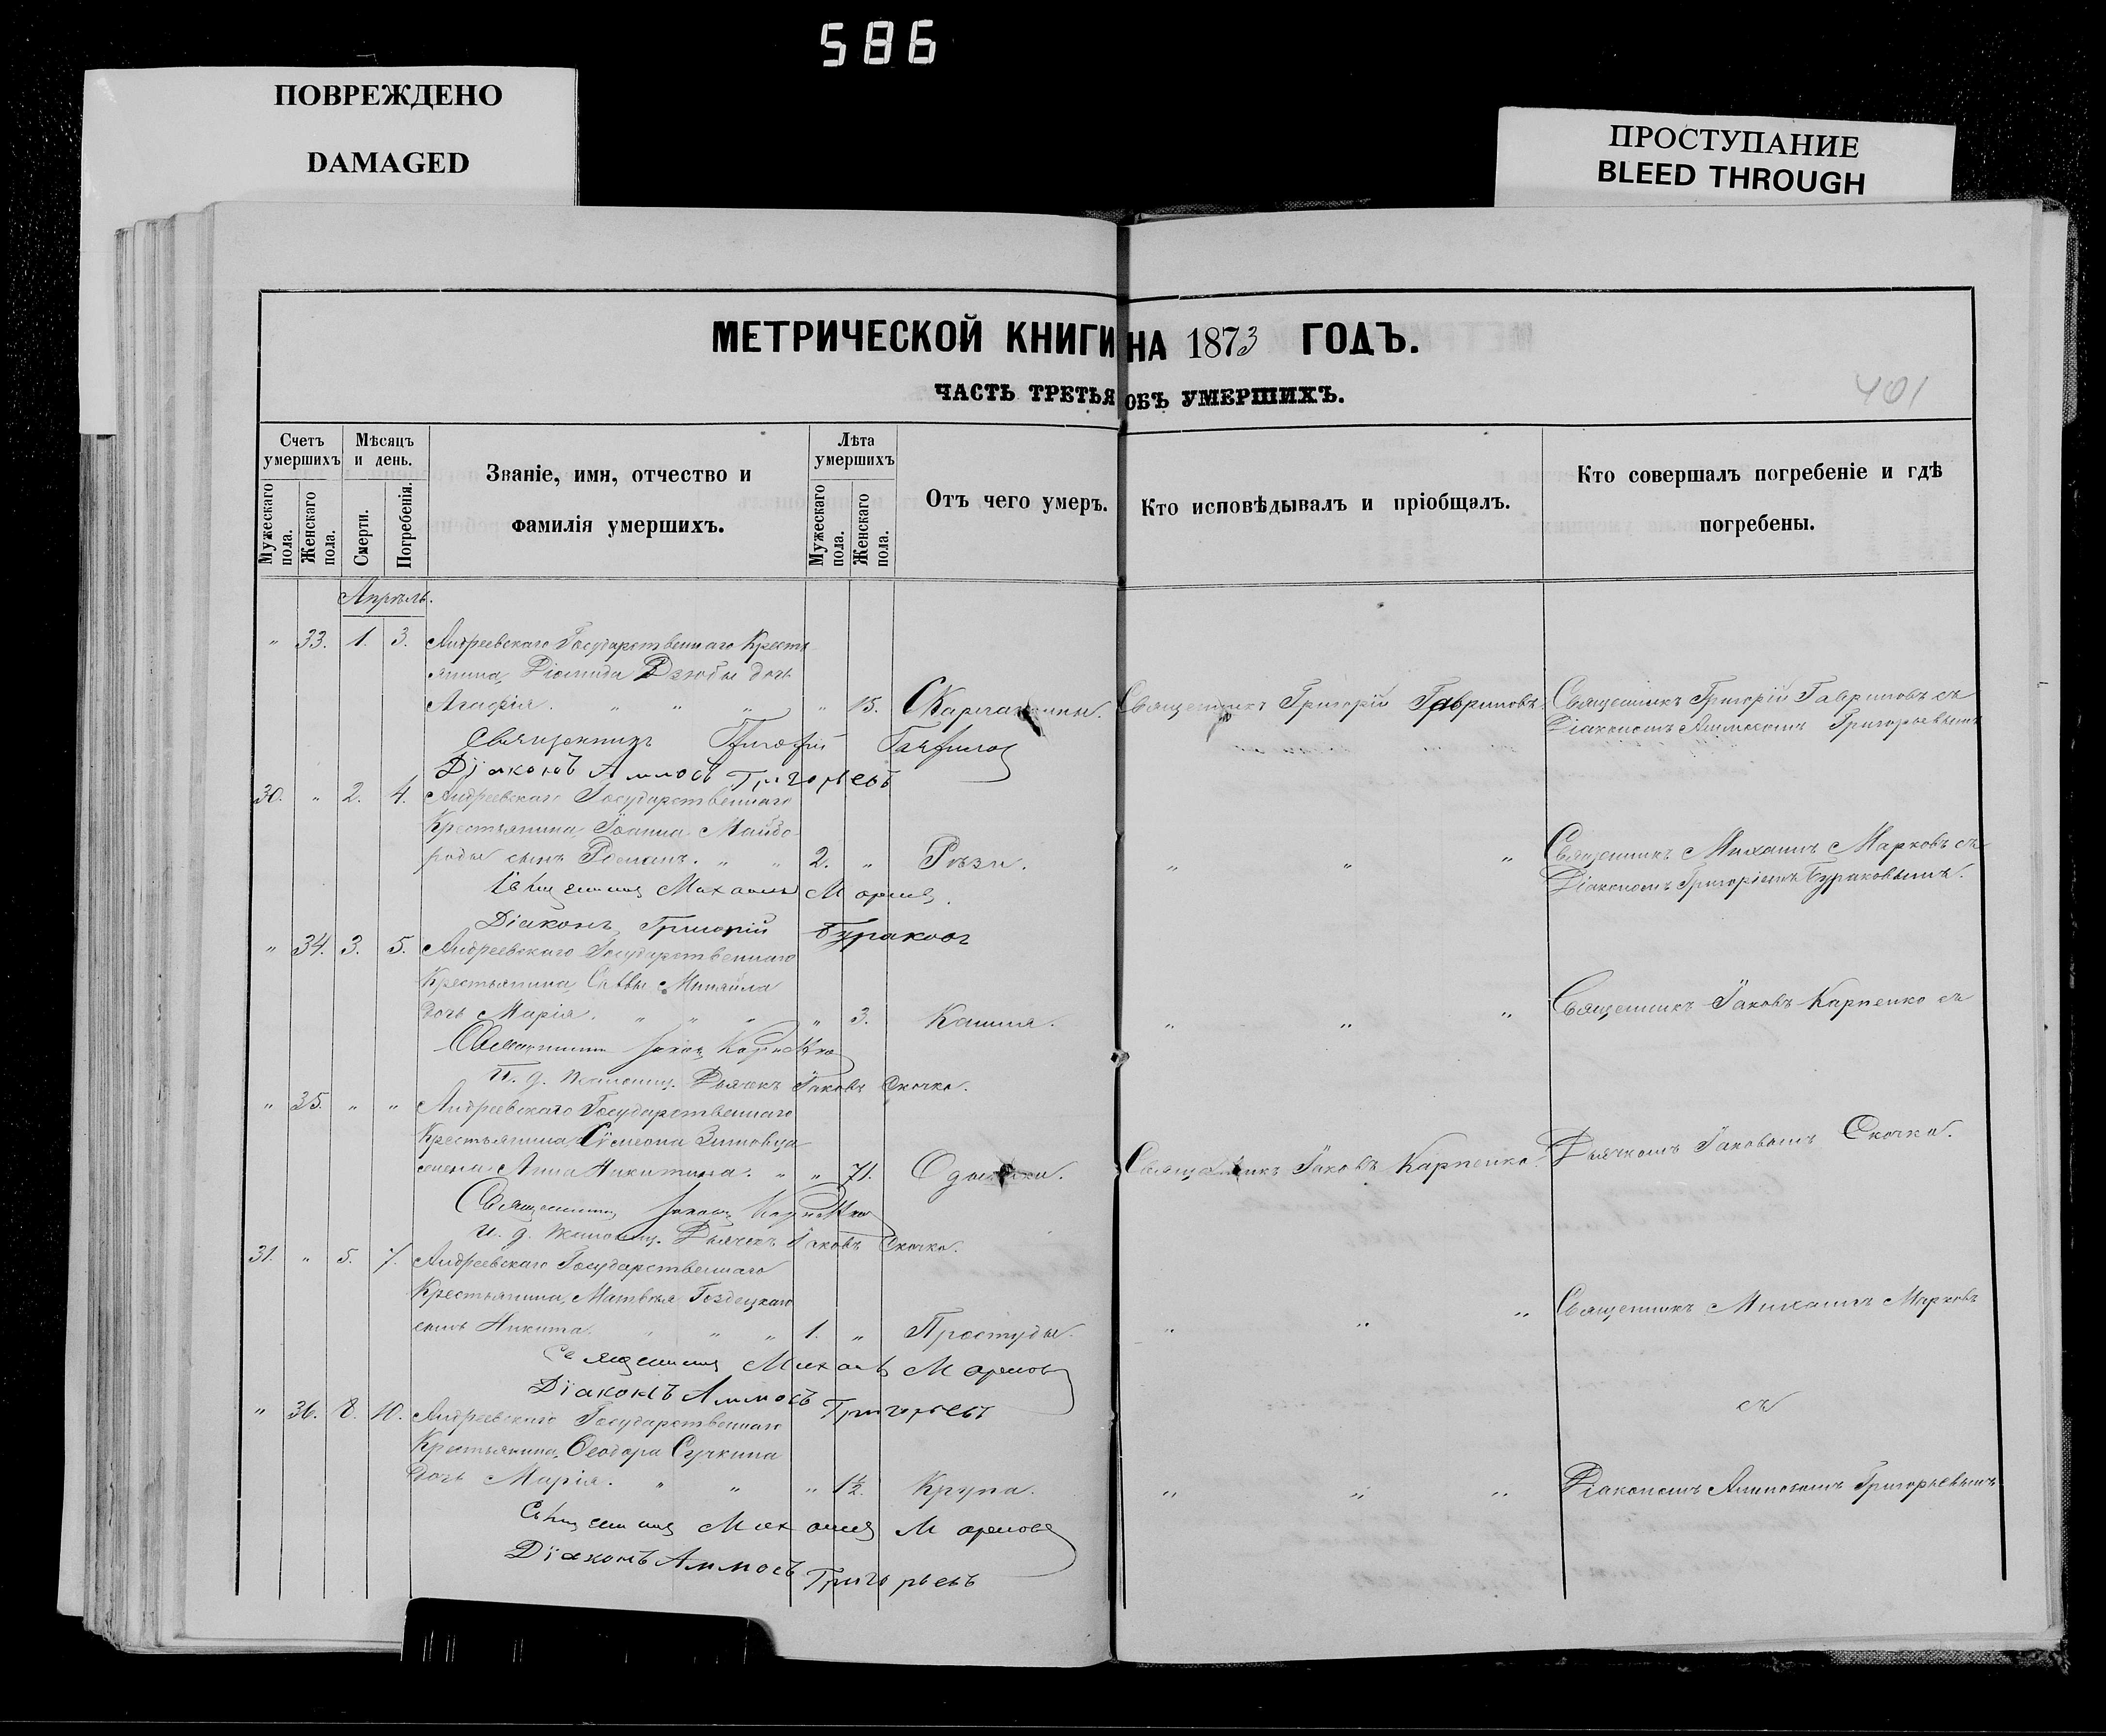 586
ПОВРЕЖДЕНО
DAMAGED
ПРОСТУПАНИЕ
BLEED THROUGH
МЕТРИЧЕСКОЙ КНИГИ НА 1873 ГОДЪ.
ЧАСТЬ ТРЕТЬЯ ОБЪ УМЕРШИХЪ.
401
Счетъ умершихъ
Мужескаго пола.
Женскаго пола.
Мѣсяцъ и день.
Смерти.
Погребенія.
Званіе, имя, отчество и
фамилія умершихъ.
Лѣта умершихъ
Мужескаго пола.
Женскаго пола.
Отъ чего умеръ.
Кто исповѣдывалъ и пріобщалъ.
Кто совершалъ погребеніе и гдѣ
погребены.
Апрѣль.
" 33. 1. 3. Андреевскаго Государственнаго Кресть
янина, Діомида Дзюбы дочь
Агафія. " " " " 15. Священникъ Григорій Гавриловъ. Священникъ Григорій Гавриловъ съ
Діакономъ Аммосомъ Григорьевымъ
Священникъ Григорій Гаврилов
Діаконъ Аммосъ Григорьевъ
30. " 2. 4. Андреевскаго Государственнаго
Крестьянина, Іоанна Майбо
роды сынъ Романъ. " " 2. " Рѣзи. " " " Священникъ Михаилъ Марковъ съ
Діакономъ Григоріемъ Бураковымъ.
Священникъ Михаилъ Марковъ
Діаконъ Григорій Бураковъ
" 34. 3. 5. Андреевскаго Государственнаго
Крестьянина, Саввы Михайла
дочь Марія. " " " " 3. Кашля. " " " Священникъ Іаковъ Карпенко съ
Священникъ Іаковъ Карпенко
И. д. Псаломщ. Дьячекъ Іаковъ Скочко.
" 35. " " Андреевскаго Государственнаго
Крестьянина Сѵмеона Зимовца
жена Анна Никитина. " " 71. Одышки. Священникъ Іаковъ Карпенко. Дьячкомъ Іаковомъ Скочко.
Священникъ Іаковъ Карпенко
И. д. Псаломщ. Дьячекъ Іаковъ Скочко.
31. " 5. 7. Андреевскаго Государственнаго
Крестьянина, Матвѣя Гоздецкаго
сынъ Никита. " " " 1. " Простуды. " " " Священникъ Михаилъ Марковъ
Священникъ Михаилъ Марковъ
Діаконъ Аммосъ Григорьевъ
" 36. 8. 10. Андреевскаго Государственнаго съ
Крестьянина, Ѳеодора Сучкина
дочь Марія. " " " 1½. Крупа. " " " Діакономъ Аммосомъ Григорьевымъ
Священникъ Михаилъ Марковъ
Діаконъ Аммосъ Григорьевъ